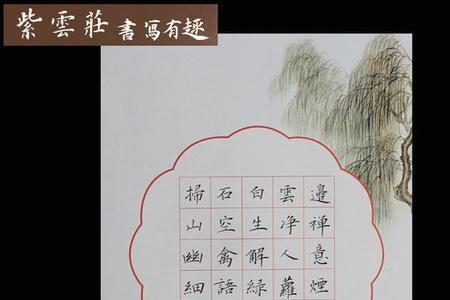 紫雲莊 書寫有趣
掃石白雲邊
山空生净禅
幽禽解人意
細語綠蘿煙